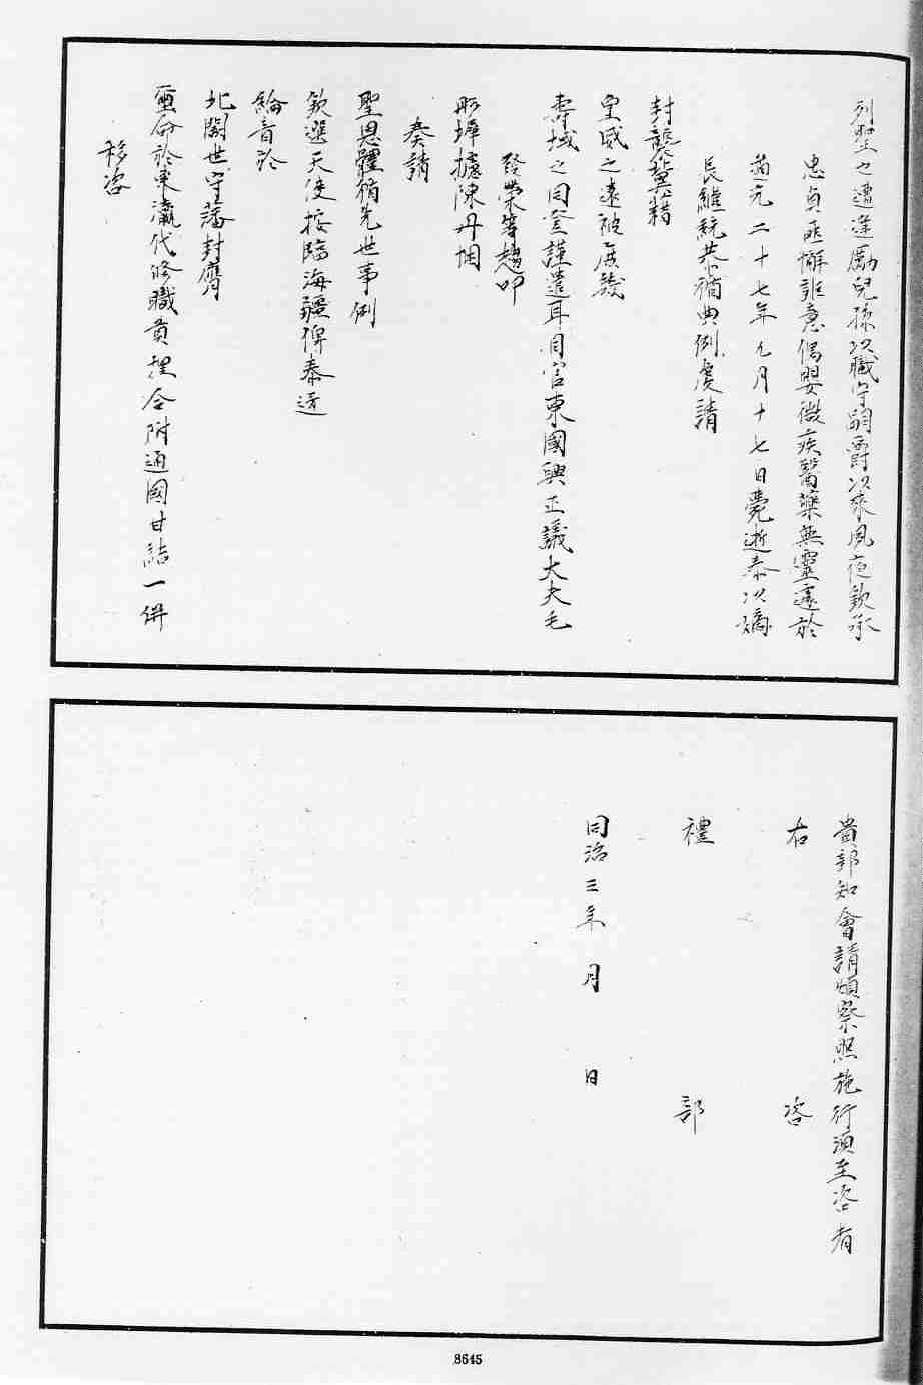 列聖之遭逢勵兒孫以職守嗣爵以來夙夜欽承
忠貞匪懈詎意偶嬰微疾醫藥無靈遽於
道光二十七年九月十七日薨逝泰以嫡
長繼統恭循典例虔請
封襲冀藉
皇威之遠被庶幾
壽域之同登謹遣耳目官東國興正議大夫毛
發榮等趨叩
彤墀摅陳丹悃
奏請
聖恩體循先世事例
欽選天使按臨海疆俾泰逆
綸音於
北闕世守藩封膺
寵命於東瀛代修職貢理合附通國甘結一併
移咨
貴部知會請煩察照施行須至咨者
右 咨
禮 部
同治三年 月 日
8645